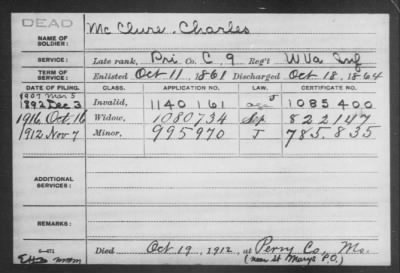 DEAD
NAME OF SOLDIER: McClure, Charles
SERVICE: Late rank, Pri. Co. C, 9 Reg't W Va Inf
TERM OF SERVICE: Enlisted Oct 11, 1861 Discharged Oct 18, 1864
DATE OF FILING. CLASS. APPLICATION NO. LAW. CERTIFICATE NO.
1907 Mar 5
1892 Dec 3 Invalid, 1140161 1085400
1916 Oct 16 Widow, 1080734 822147
1912 Nov 7 Minor, 995970 J 785.835
ADDITIONAL SERVICES:
REMARKS:
Died Oct 19, 1912, at Perry Co, Mo.
(near St Marys P.O.)